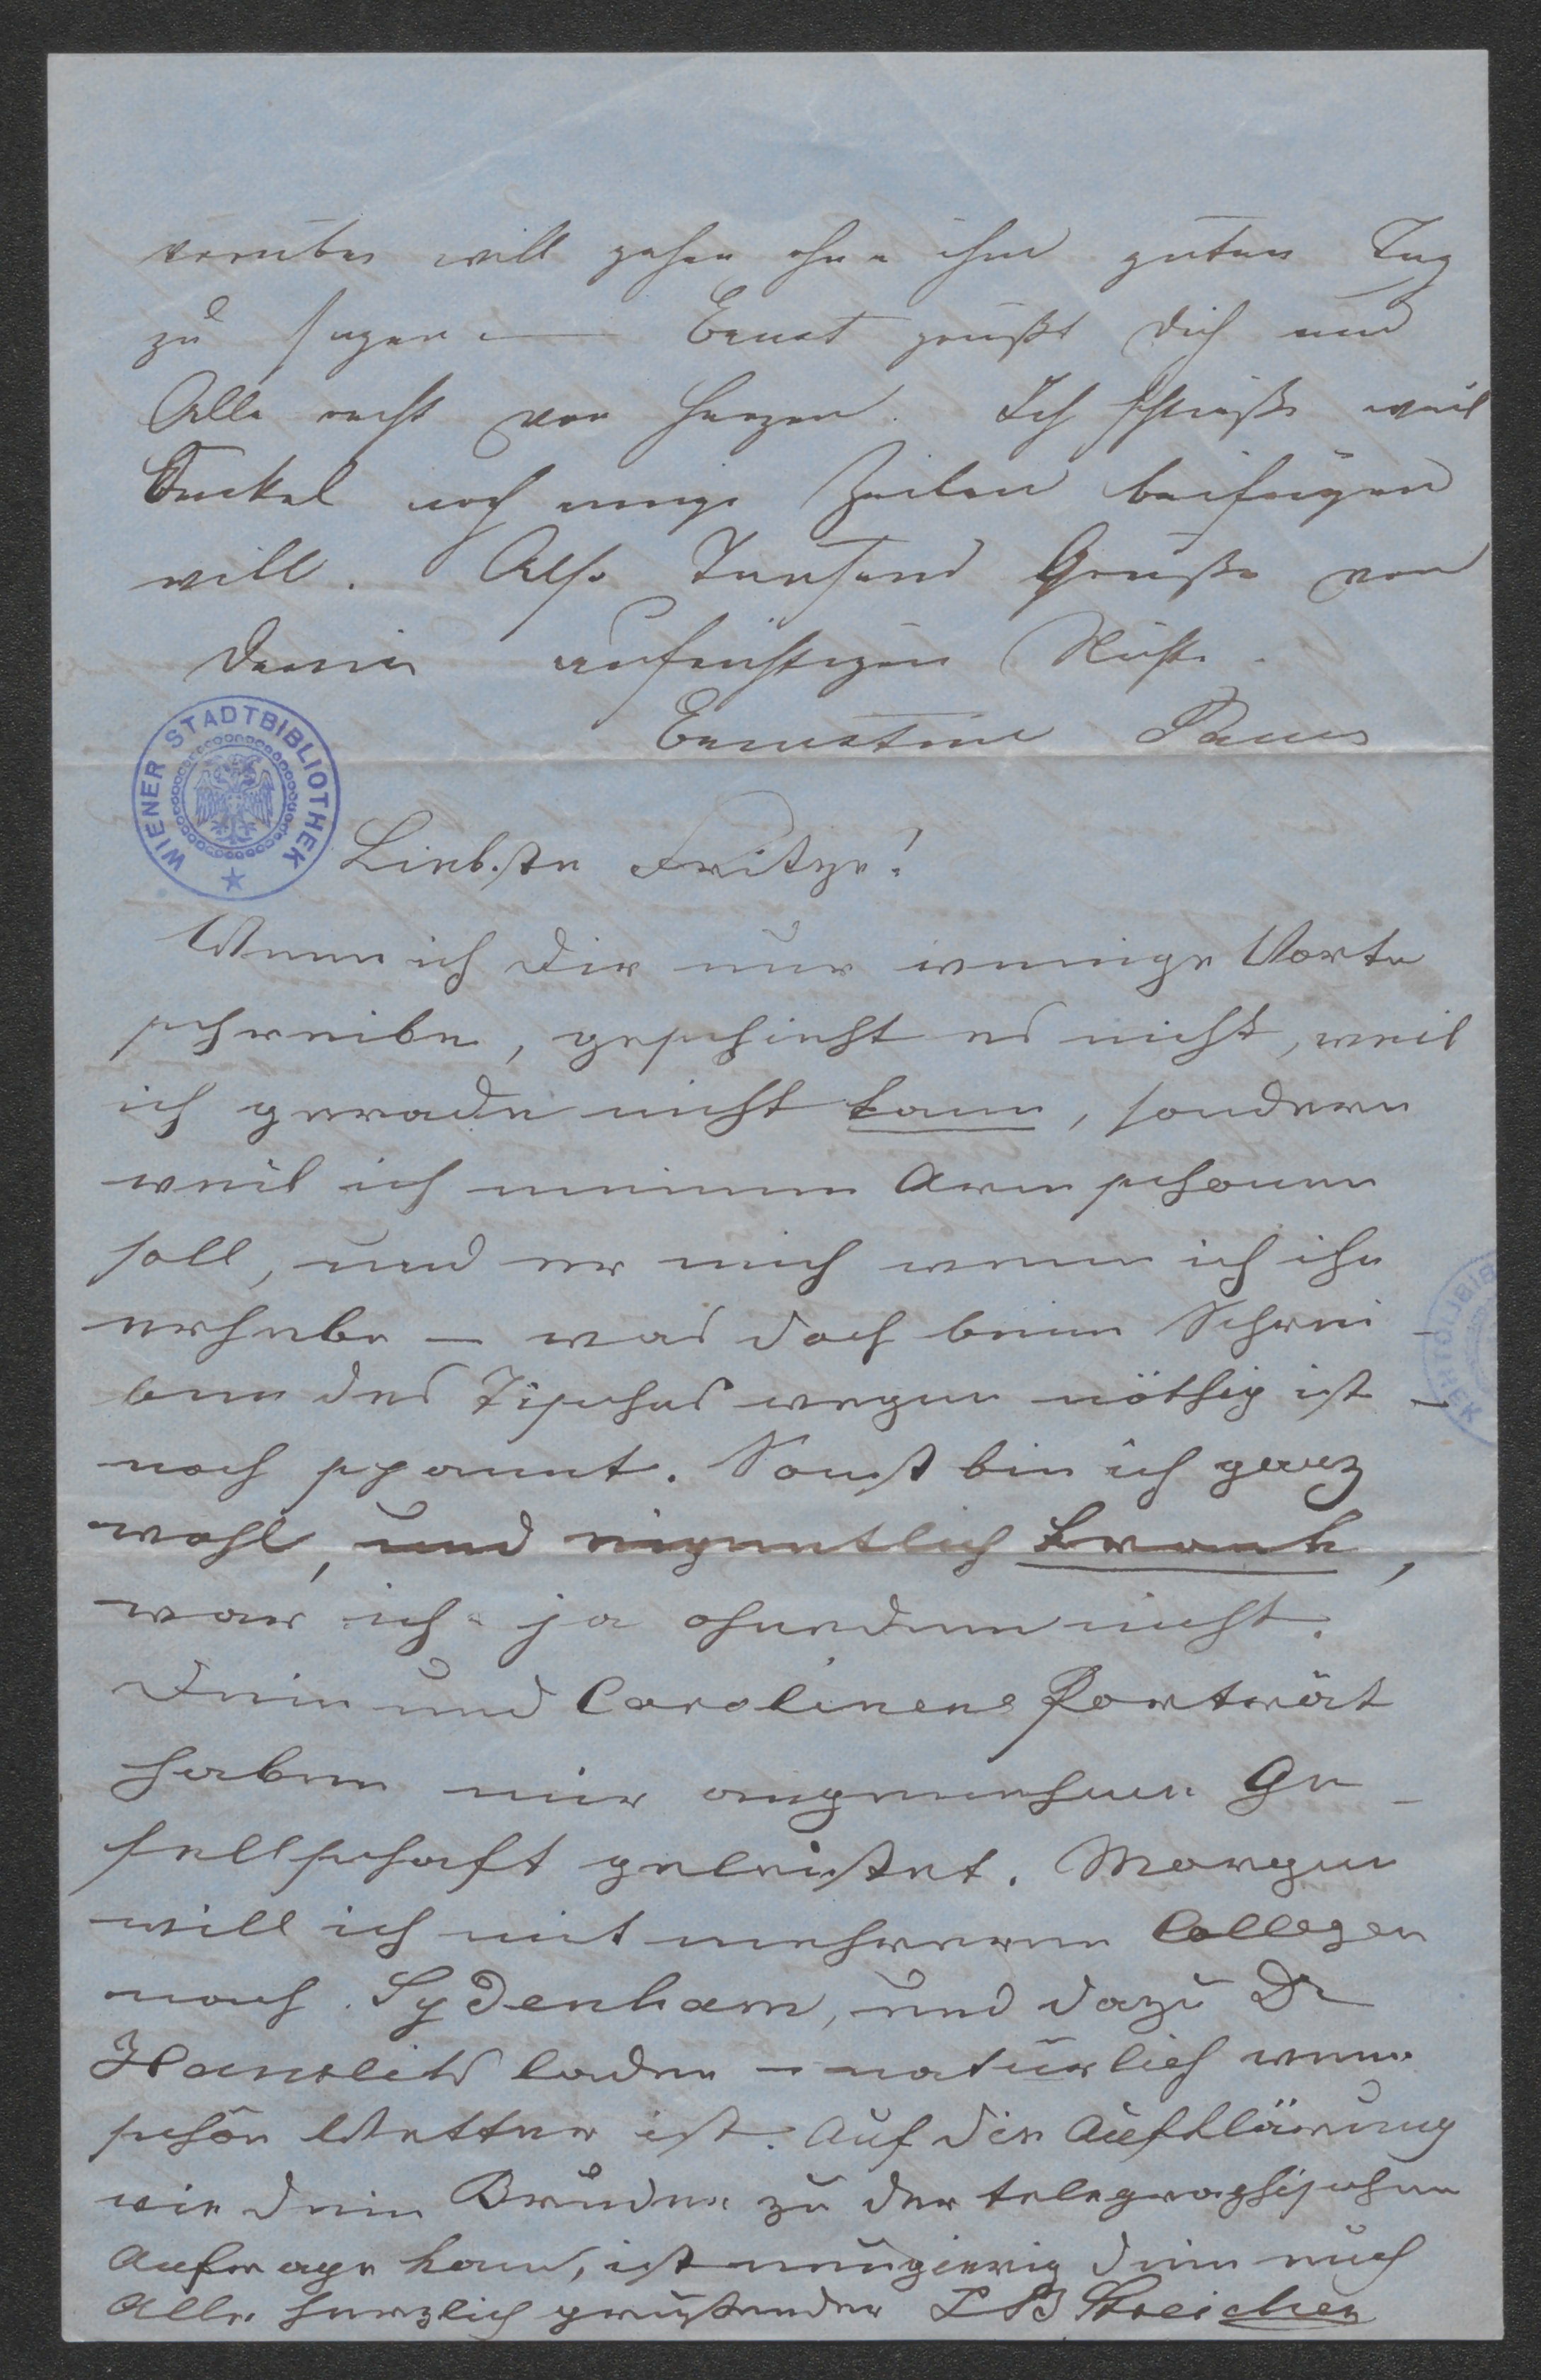 vorüber will gehen ohne ihm guten Tag
zu sagen — Ernst grüßt Dich und
Alle recht von Herzen. Ich schließe weil
Onckel noch einige Zeilen beifügen
will. Also Tausend Grüße von
Deiner aufrichtigen Nichte.
Ernestine Pauer
WIENER STADTBIBLIOTHEK
Liebste Fritze!
Wenn ich Dir nur wenige Worte
schreibe, geschieht es nicht, weil
ich gerade nicht kann, sondern
weil ich meinen Arm schonen
soll, und er mich wenn ich ihn
erhebe — was doch beim Schrei-
ben des Tisches wegen nöthig ist —
noch spannt. Sonst bin ich ganz
wohl, und eigentlich krank,
war ich ja ohnedem nicht.
Dein und Carolinens Porträt
haben mir angenehme Ge-
sellschaft geleistet. Morgen
will ich mit mehreren Collegen
nach Sydenham, und dazu Dr
Hanslick laden — natürlich wenn
schön Wetter ist. Auf die Aufklärung
wie Dein Bruder zu der telegraphischen
Anfrage kam, ist neugierig Dein euch
Alle herzlich grüßender J B Streicher